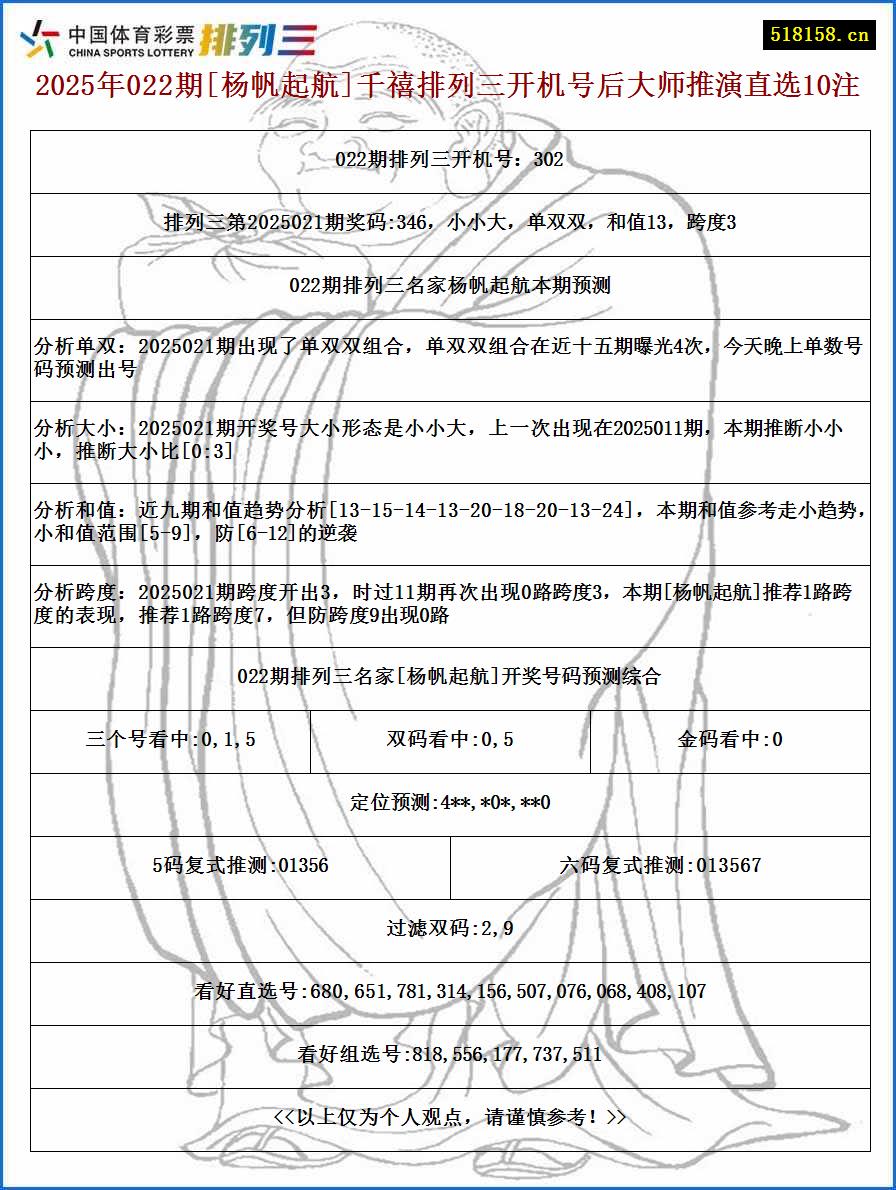 中国体育彩票
CHINA SPORTS LOTTERY
排列三
518158.cn
2025年022期[杨帆起航]千禧排列三开机号后大师推演直选10注
022期排列三开机号：302
排列三第2025021期奖码:346，小小大，单双双，和值13，跨度3
022期排列三名家杨帆起航本期预测
分析单双：2025021期出现了单双双组合，单双双组合在近十五期曝光4次，今天晚上单数号
码预测出号
分析大小：2025021期开奖号大小形态是小小大，上一次出现在2025011期，本期推断小小
小，推断大小比[0:3]
分析和值：近九期和值趋势分析[13-15-14-13-20-18-20-13-24]，本期和值参考走小趋势，
小和值范围[5-9]，防[6-12]的逆袭
分析跨度：2025021期跨度开出3，时过11期再次出现0路跨度3，本期[杨帆起航]推荐1路跨
度的表现，推荐1路跨度7，但防跨度9出现0路
022期排列三名家[杨帆起航]开奖号码预测综合
三个号看中:0,1,5
双码看中:0,5
金码看中:0
定位预测:4**,*0*,**0
5码复式推测:01356
六码复式推测:013567
过滤双码:2,9
看好直选号:680,651,781,314,156,507,076,068,408,107
看好组选号:818,556,177,737,511
<<以上仅为个人观点，请谨慎参考！>>